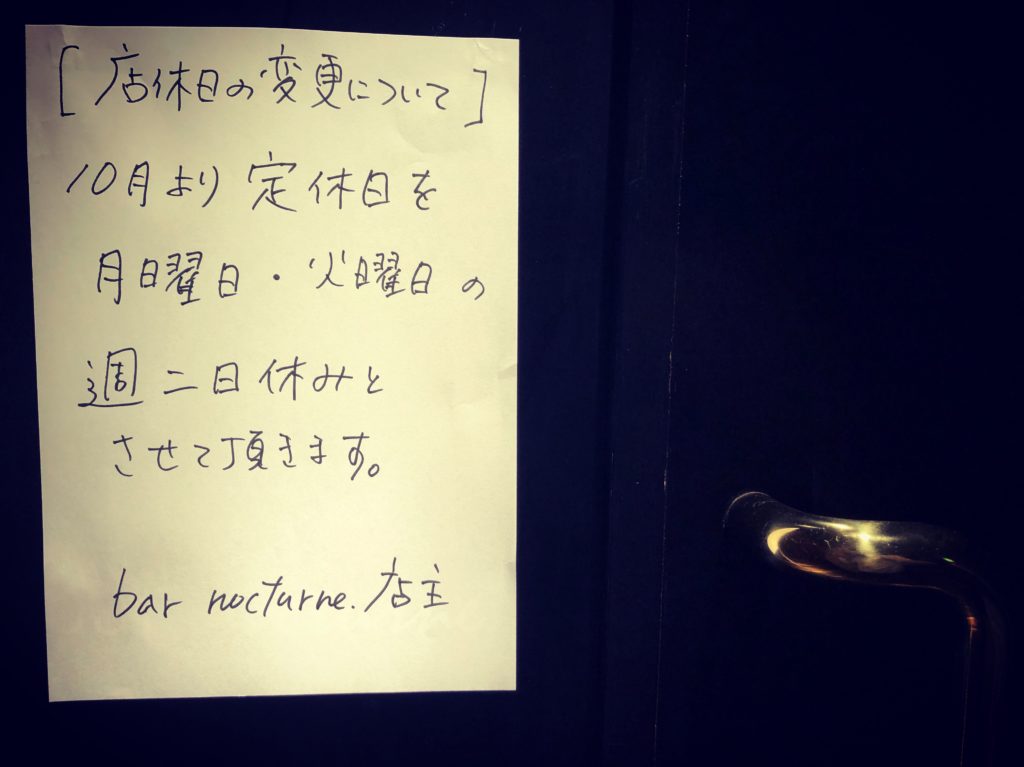 [店休日の変更について]
10月より定休日を
月曜日・火曜日の
週二日休みと
させて頂きます。
bar nocturne.店主